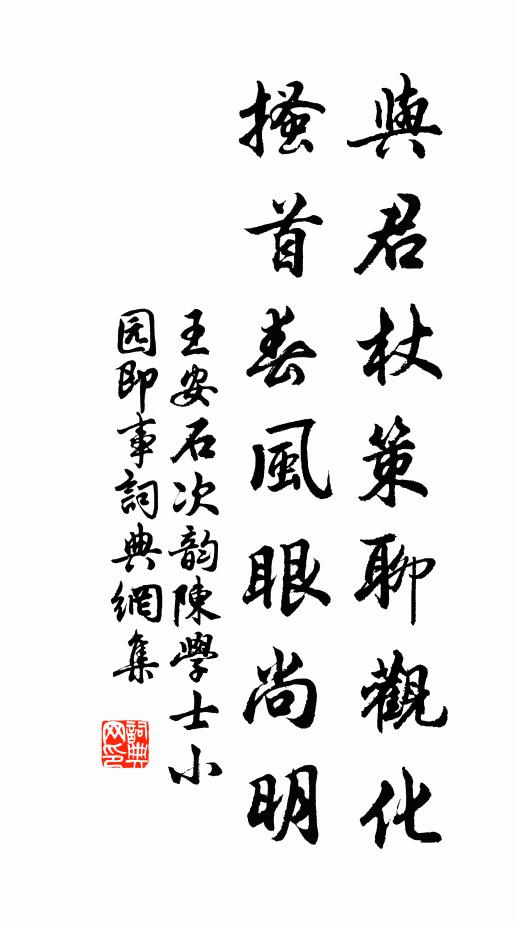 與君杖策聊觀化
搔首春風眼尚明
王安石次韵陳學士小
园即事詞典網集
詞典
网印